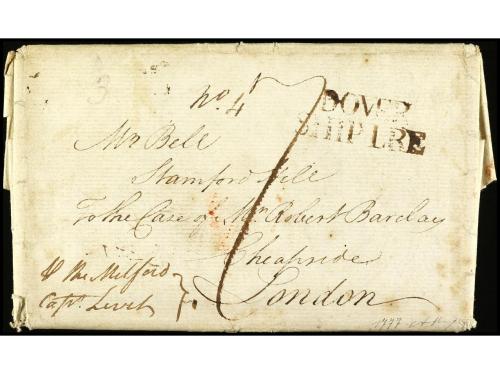 3
No. 4
DOVER
SHIP LRE
7
Mr. Bell
Stamford Hill
To the Care of Mr. Robert Barclay
Cheapside
London
⅌ the Milford
Capt.
1777